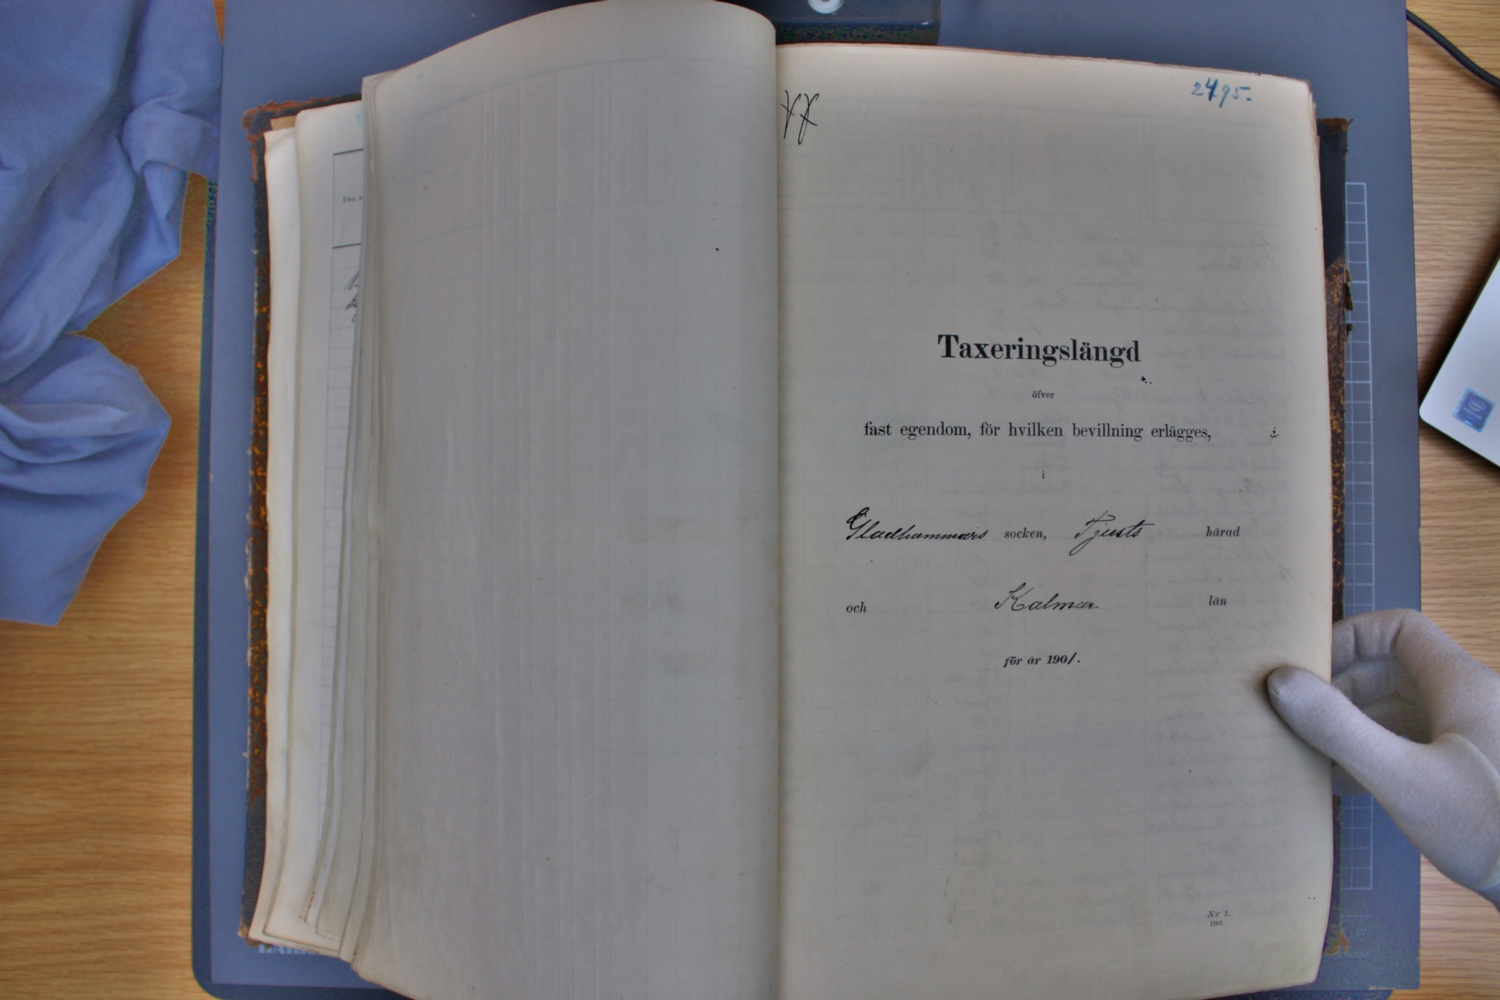 2495.
Taxeringslängd
öfver
fast egendom, för hvilken bevillning erlägges,
i
Gladhammars socken, Tjusts härad
och Kalmar län
för år 1901.
N:r 1.
1901